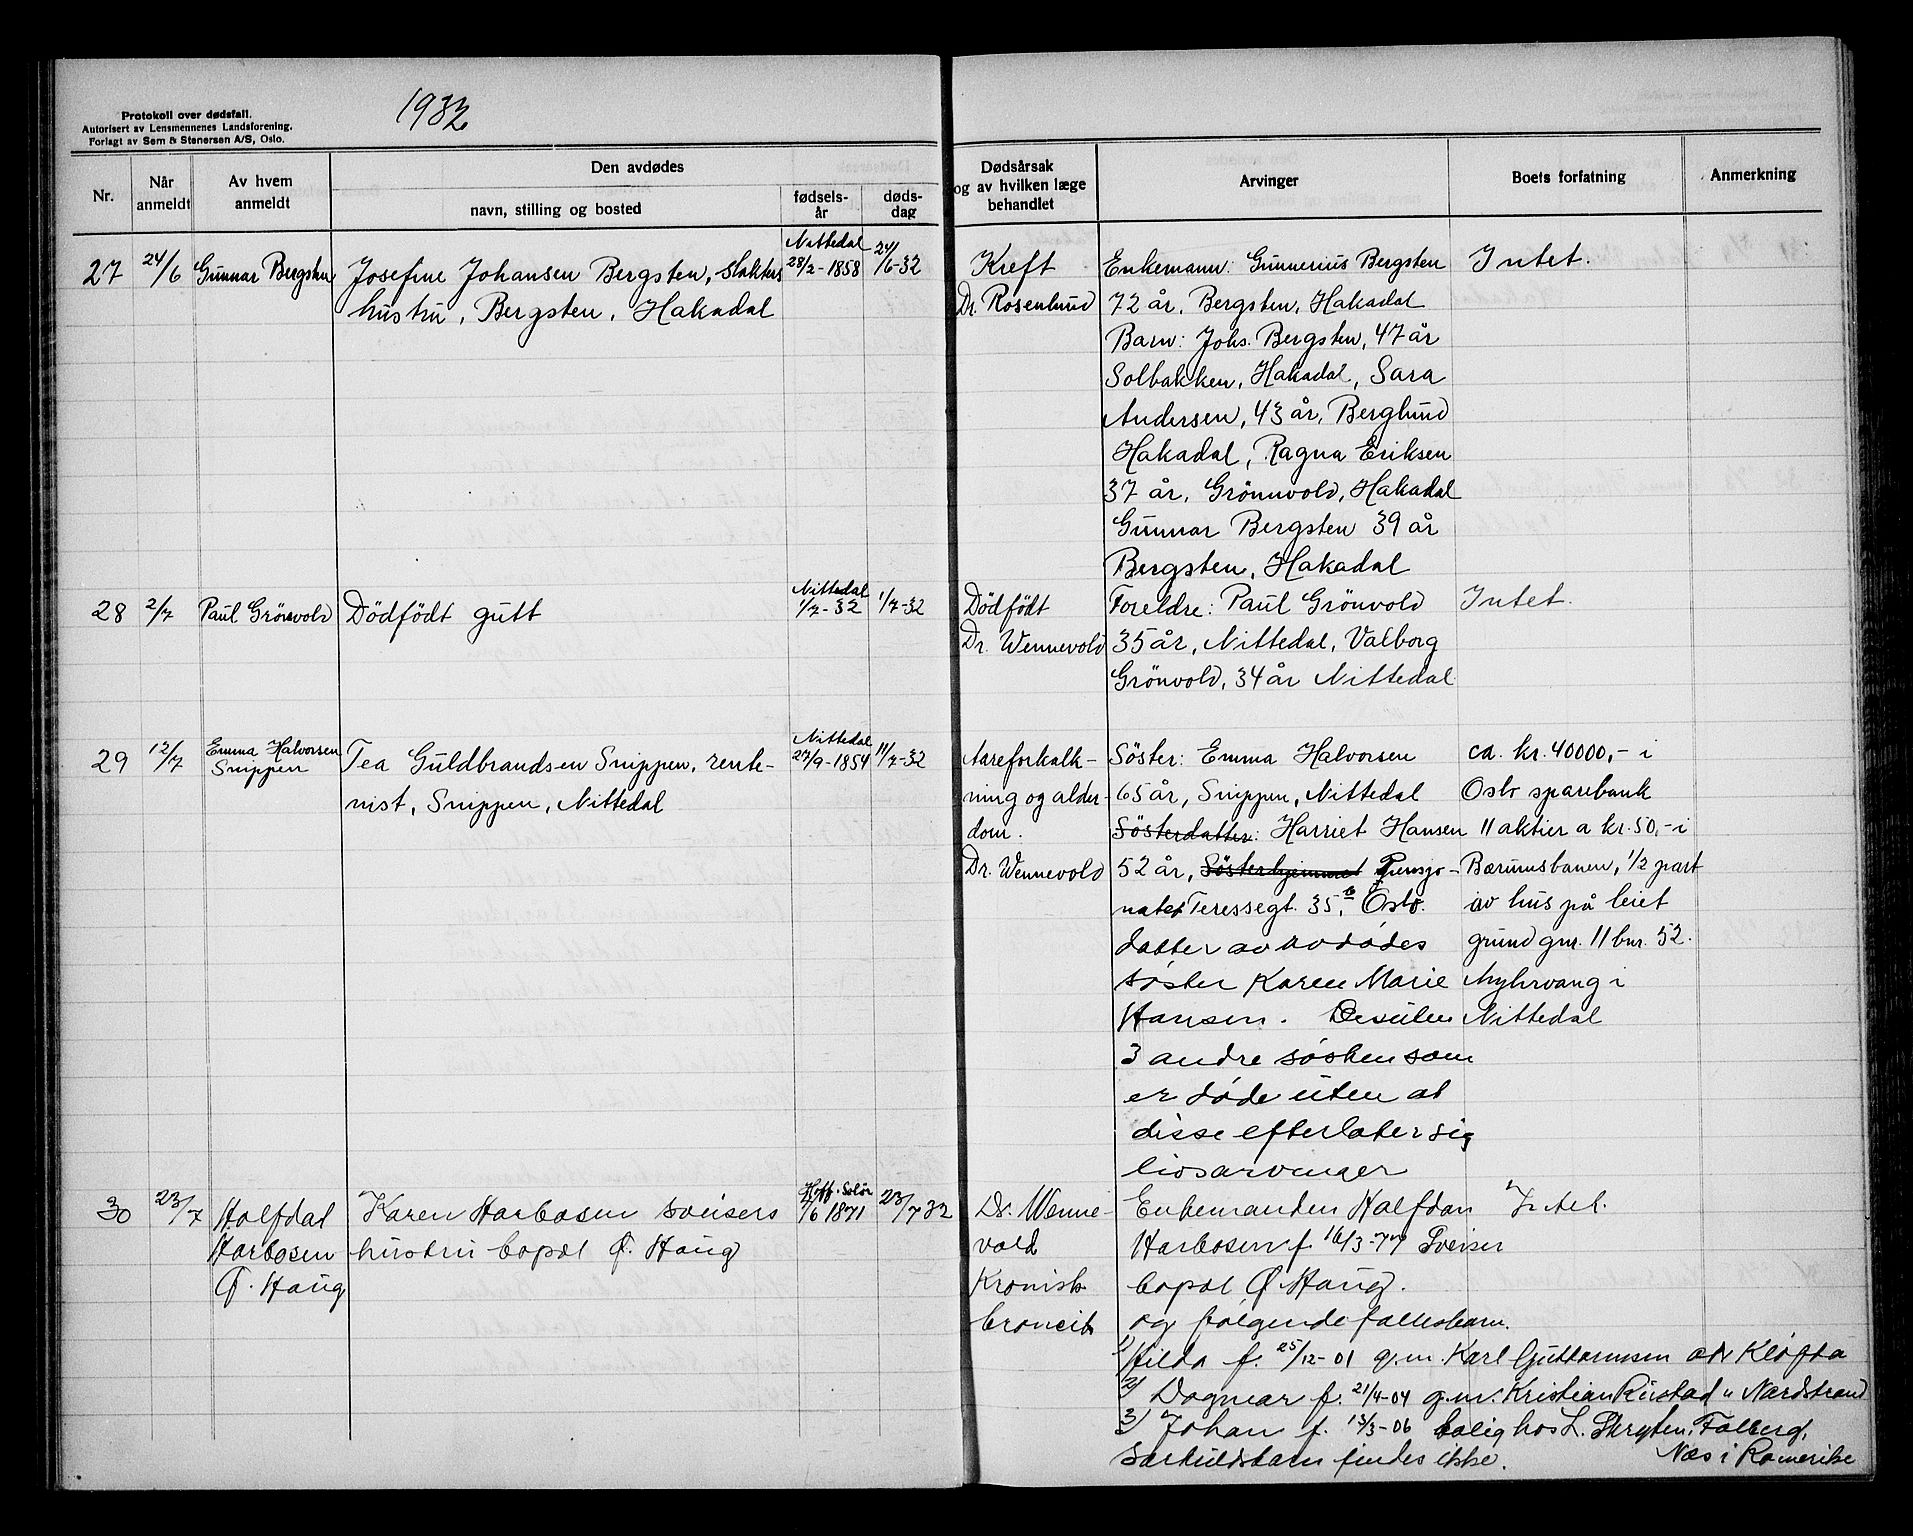 Protokoll over dødsfall.
Autorisert av Lensmennenes Landsforening.
Forlagt av Sem & Stenersen A/S, Oslo.
1932
Nr.
Når anmeldt
Av hvem anmeldt
Den avdødes
navn, stilling og bosted
fødsels-
år
døds-
dag
Dødsårsak
og av hvilken læge
behandlet
Arvinger
Boets forfatning
Anmerkning
27 24/6 Gunnar Bergsten
Josefine Johansen Bergsten, slakters
hustru, Bergsten, Hakadal
Nittedal
28/2-1858
24/6-32
Kreft
Dr. Rosenlund
Enkemann: Gunnerius Bergsten
72 år, Bergsten, Hakadal
Barn: Johs. Bergsten, 47 år
Solbakken, Hakadal, Sara
Andersen, 43 år, Berglund
Hakadal, Ragna Eriksen
37 år, Grönnvold, Hakadal
Gunnar Bergsten 39 år
Bergsten, Hakadal
Intet.
28 2/7 Paul Grönvold
Dödfödt gutt
Nittedal
1/7-32
1/7-32
Dödfödt
Dr. Wennevold
Foreldre: Paul Grönvold
35 år, Nittedal, Valborg
Grönvold, 34 år Nittedal
Intet.
29 12/7 Emma Halvorsen
Snippen
Tea Guldbrandsen Snippen, rente-
nist, Snippen, Nittedal
Nittedal
27/9-1854
11/7-32
Aareforkalk-
ning og alder-
dom.
Dr. Wennevold
Söster: Emma Halvorsen
65 år, Snippen, Nittedal
Sösterdatter: Harriet Hansen
52 år, Sösterhjemmet Pensjo-
natet Teressegt. 35 b, Oslo.
datter av avdødes
søster Karen Marie
Hansen. Desuten
3 andre søsken som
er døde uten at
disse efterlater sig
livsarvinger
ca. kr. 40000,- i
Oslo sparebank
11 aktier a kr. 50,- i
Bærumsbanen, 1/2 part
av hus på leiet
grund gnr. 11 bnr. 52.
Myhrvang i
Nittedal
30 23/7 Halfdal
Harbosen
Ø. Haug
Karen Harbosen sveisers
hustru bopæl Ø. Haug
Hoff. Solør
7/6 1871
23/7 32
Dr. Wenne-
vold
Kronisk
broncit
Enkemanden Halfdan
Harbosen f. 16/3-77 Sveiser
bopæl Ø Haug.
og følgende fællesbarn.
1) Hilda f. 25/12-01 g.m. Karl Guttormsen adr Kløfta
2) Dagmar f. 21/4-04 g.m. Kristian Rustad " Nordstrand
3) Johan f. 13/3-06 bolig hos L. Skryten, Falberg,
Næs i Romerike
Særkuldsbarn findes ikke.
Intet.